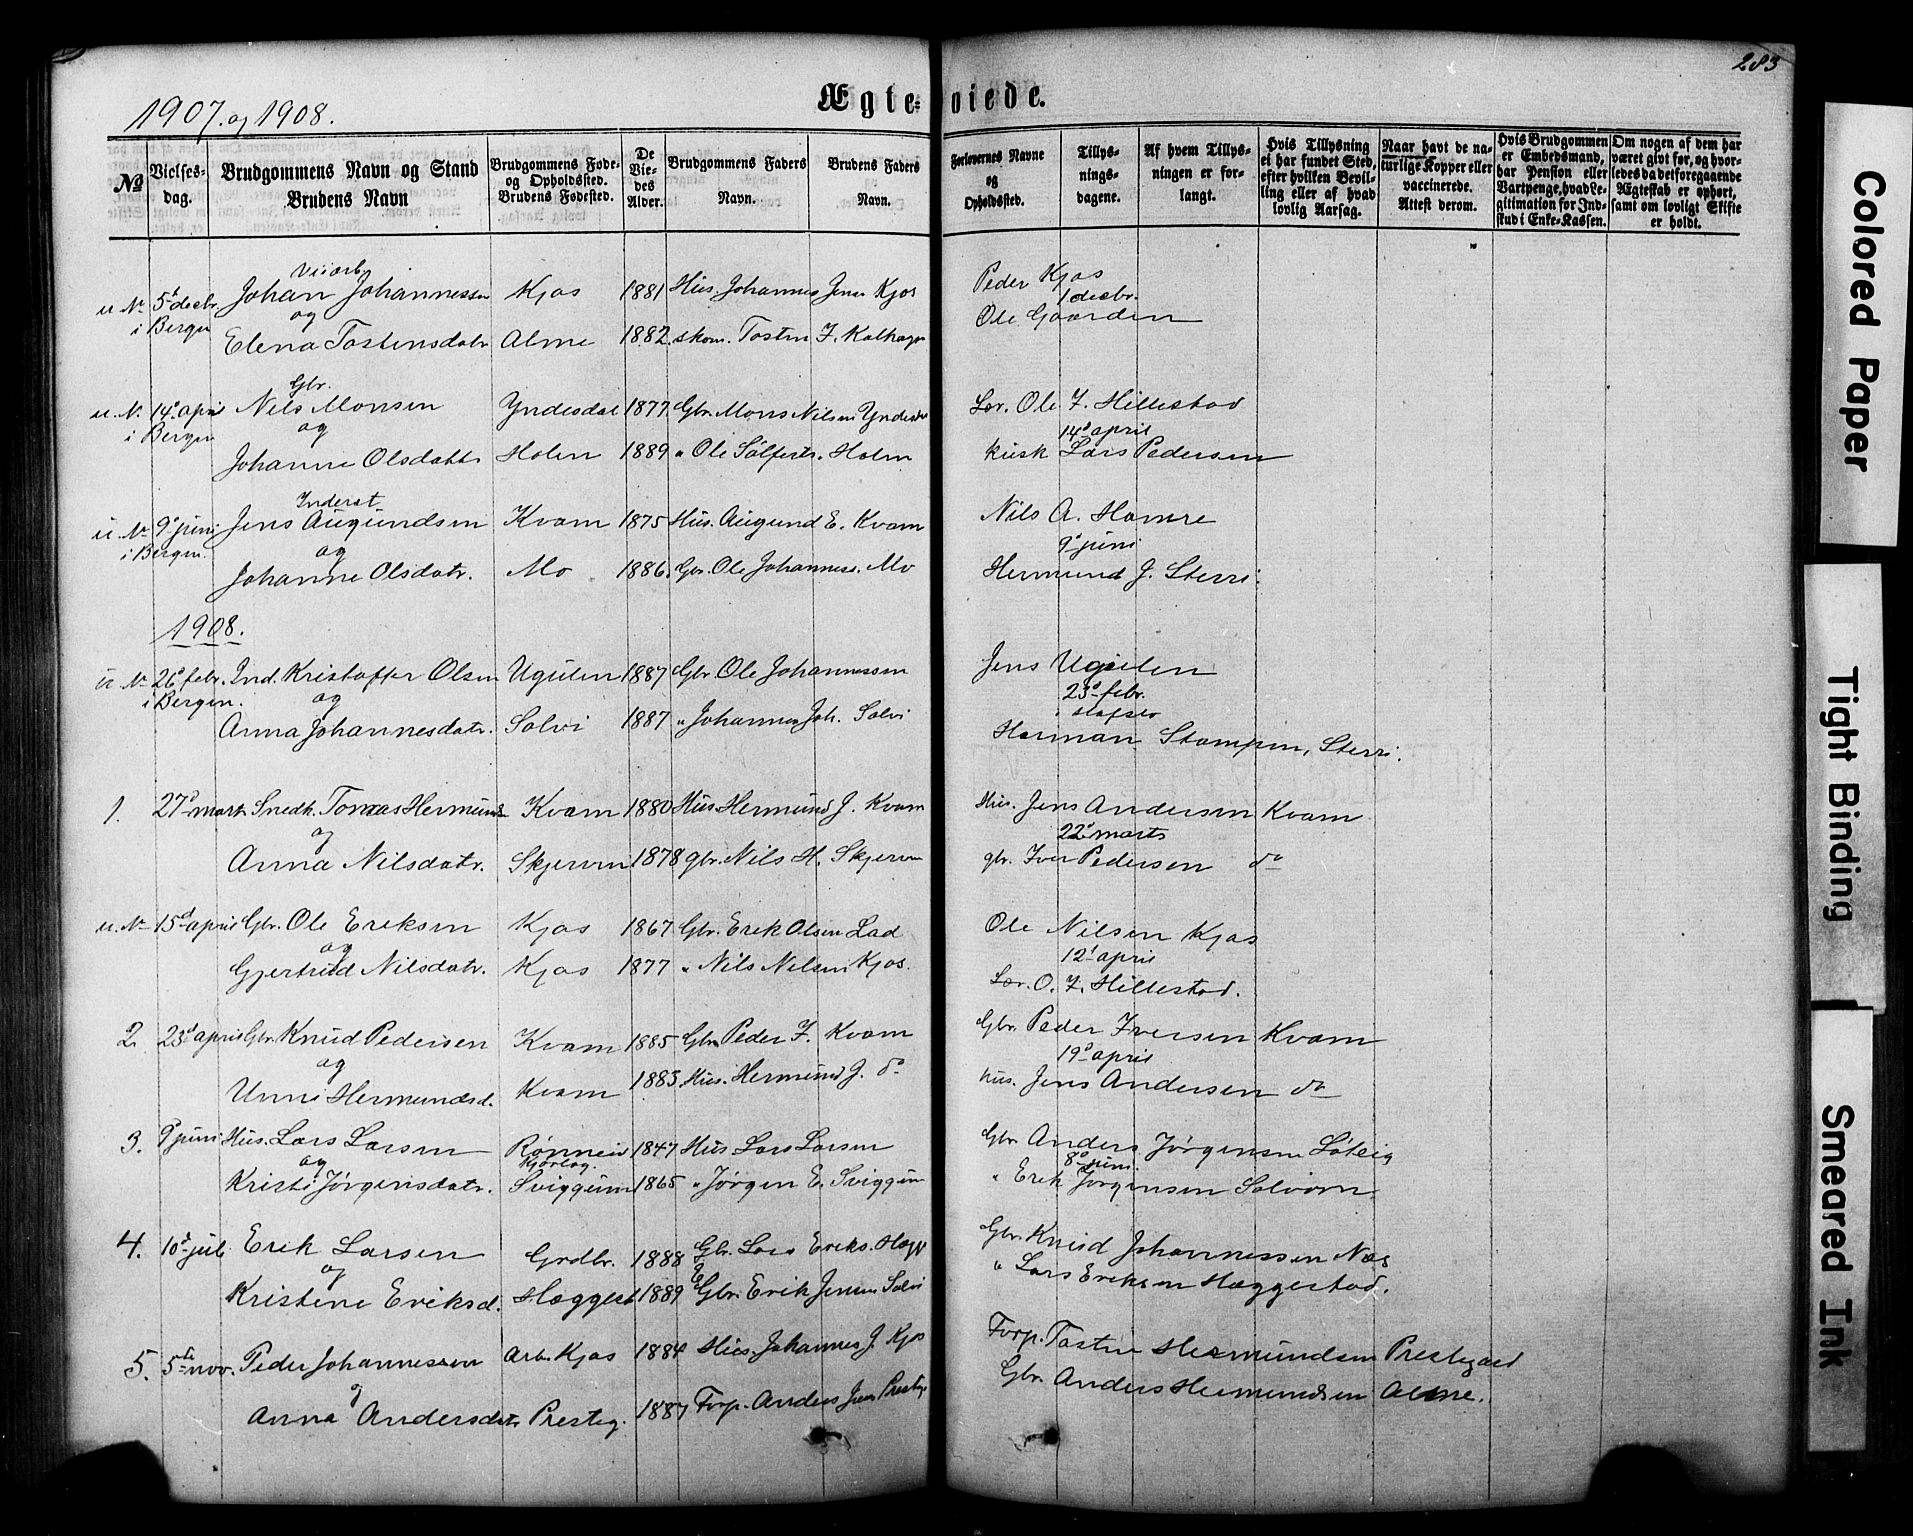 283
1907. og 1908.
Ægte-viede.
No
Vielses-dag.
Brudgommens Navn og Stand
Brudens Navn
Brudgommens Føde- og Opholdssted.
Brudens Fødested.
De Viedes Alder.
Brudgommens Faders Navn.
Brudens Faders Navn.
Forlovernes Navne og Opholdssted.
Tillys-nings-dagene.
Af hvem Tillys-ningen er for-langt.
Hvis Tillysning ei har fundet Sted, efter hvilken Bevil-ling eller af hvad lovlig Aarsag.
Naar havt de na-turlige Kopper eller vaccinerede. Attest derom.
Hvis Brudgommen er Embedsmand, har Pension eller Vartpenge, hvad Le-gitimation for Ind-skud i Enke-Kassen.
Om nogen af dem har været givt før, og hvor-ledes da det foregaaende Ægteskab er ophørt, samt om lovligt Skifte er holdt.
u No 5t decbr. Johan Johannessen Kjos 1881 Hus. Johannes Jens Kjos Peder Kjos
i Bergen og 1 decbr.
Elena Tostensdatr Alme 1882. skom. Tosten Ole Gaarden
Gbr.
u. No 14d april Nils Monsen Yndesdal 1877. Gbr. Mons Nilsen Yndesdal Lær. Ole I. Hillestad
i Bergen og 14d april
Johanne Olsdatter Holen 1889 " Ole Holen Kusk Lars Pedersen
Inderst
u No 9d juni Jens Augundsen Kvam 1875 Hus. Augund E. Kvam Nils A. Hamre
i Bergen. og 9d juni
Johanne Olsdatr. Mo 1886. Gbr. Ole Johanness. Mo Hermund J. Sterri.
1908.
u No 26d febr. Ind. Kristoffer Olsen Ugulen 1887 Gbr. Ole Johannessen Jens Ugulen
i Bergen. og 23d febr.
Anna Johannesdatr. Solvi 1887 " Johannes Joh. Solvi
Herman Stampen, Sterri.
1. 27d marts Snedk. Tomas Hermunds Kvam 1880 Hus. Hermund J. Kvam Hus. Jens Andersen Kvam
og 22d marts
Anna Nilsdatr. Skjerven 1878 gbr. Nils H. Skjerven gbr. Iver Pedersen do
u. No 15d april Gbr. Ole Eriksen Kjos 1867 Gbr. Erik Olsen Lad Ole Nilsen Kjos
og 12t april
Gjertrud Nilsdatr. Kjos 1877 " Nils Nilsen Kjos. Lær. O. I. Hillestad.
2. 23d april Gbr. Knud Pedersen Kvam 1885 Gbr. Peder I. Kvam Gbr. Peder Iversen Kvam
og 19d april
Unni Hermundsd. Kvam 1883 Hus. Hermund J. do Hus. Jens Andersen do
3. 9d juni Hus. Lars Larsen Rønneid 1847 Hus Lars Larsen Gbr. Anders Jørgensen
og 8d juni.
Kristi Jørgensdatr. Sviggum 1865 " Jørgen E. Sviggum " Erik Jørgensen Solvorn
4. 10d juli Erik Larsen Grdbr. 1888 Gbr. Lars Eriks. Hægg Gbr. Knud Johannessen Næs
og " Lars Eriksen Hæggestad.
Kristene Eriksd. Hæggest 1889 Gbr. Erik Jensen Solvi
5. 5te nov. Peder Johannessen Arb. Kjos 1884 Hus. Johannes J. Kjos Forp. Tosten Hermundsen Prestegard
og Gbr. Anders Hermundsen Alme.
Anna Andersdatr Presteg. 1887 Forp. Anders Jens. Presteg
Colored Paper
Tight Binding
Smeared Ink